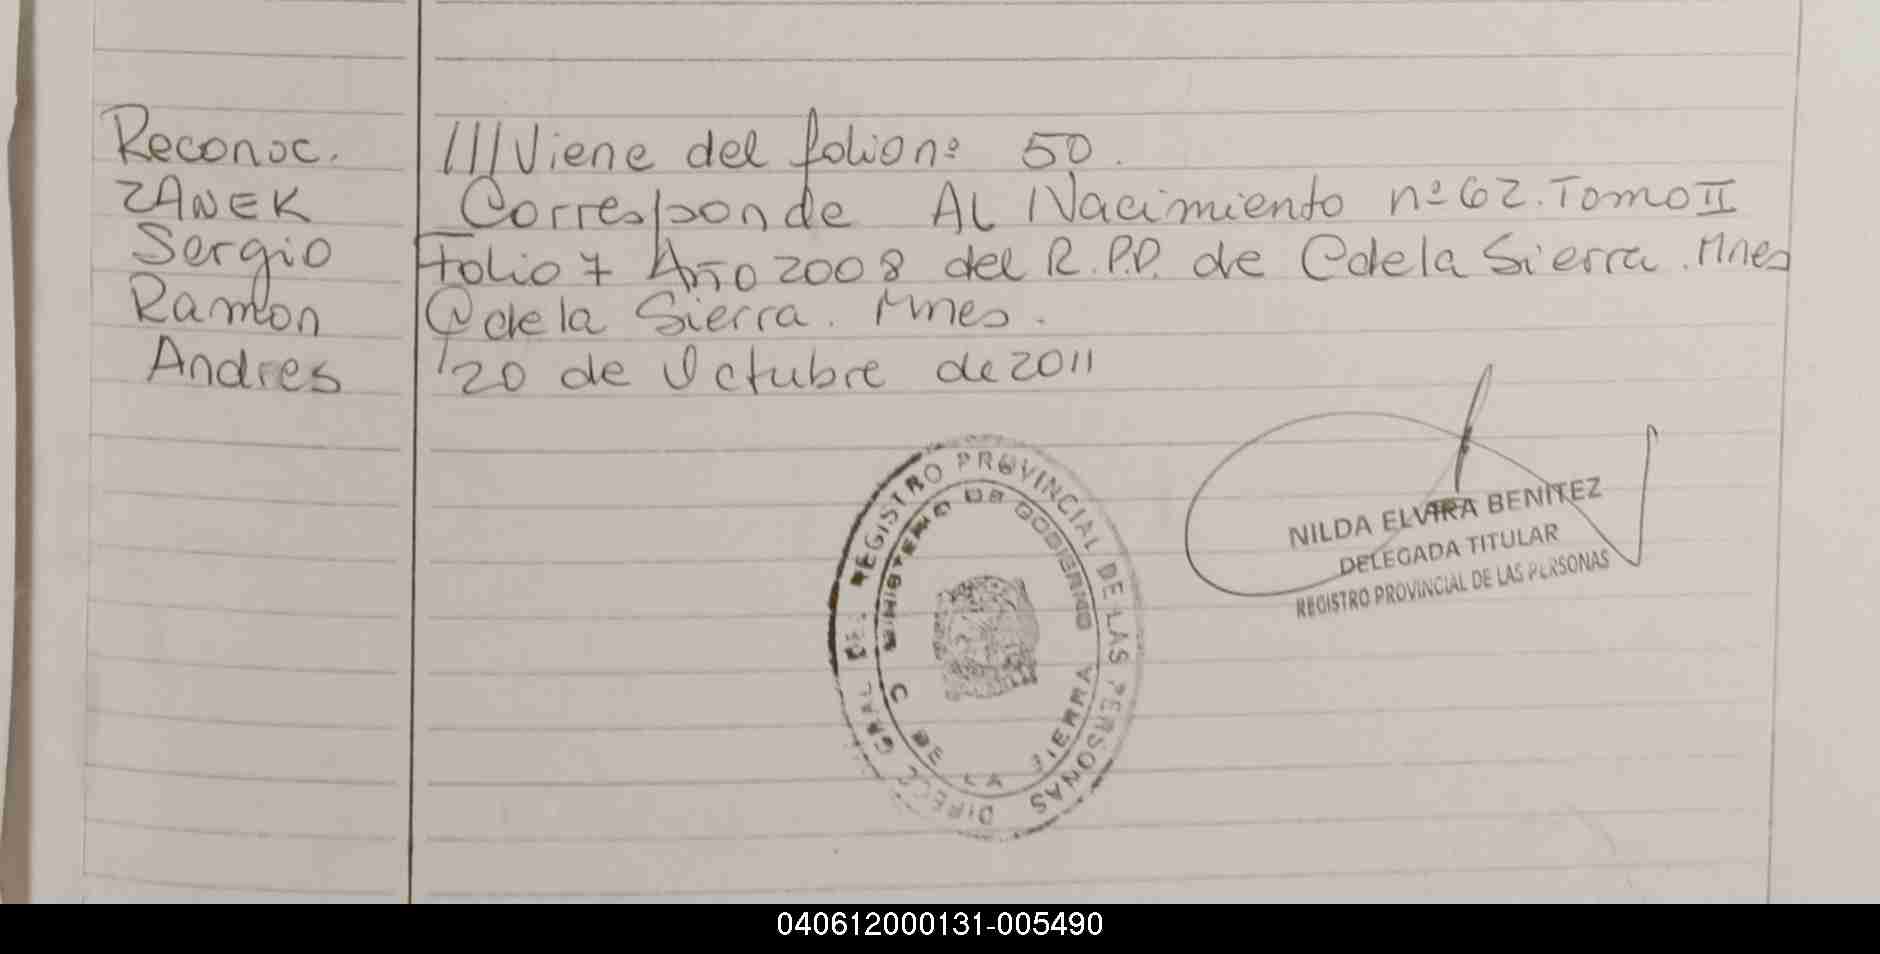 Reconoc.
ZANEK
Sergio
Ramon
Andres
///Viene del folio nº 50.
Corresponde Al Nacimiento nº 62. Tomo II
Folio 7 Año 2008 del R.P.P. de C de la Sierra. Mnes
C de la Sierra. Mnes.
20 de Octubre de 2011
DIRECC GRAL DEL REGISTRO PROVINCIAL DE LAS PERSONAS
MINISTERIO DE GOBIERNO
C DE LA SIERRA
NILDA ELVIRA BENITEZ
DELEGADA TITULAR
REGISTRO PROVINCIAL DE LAS PERSONAS
040612000131-005490